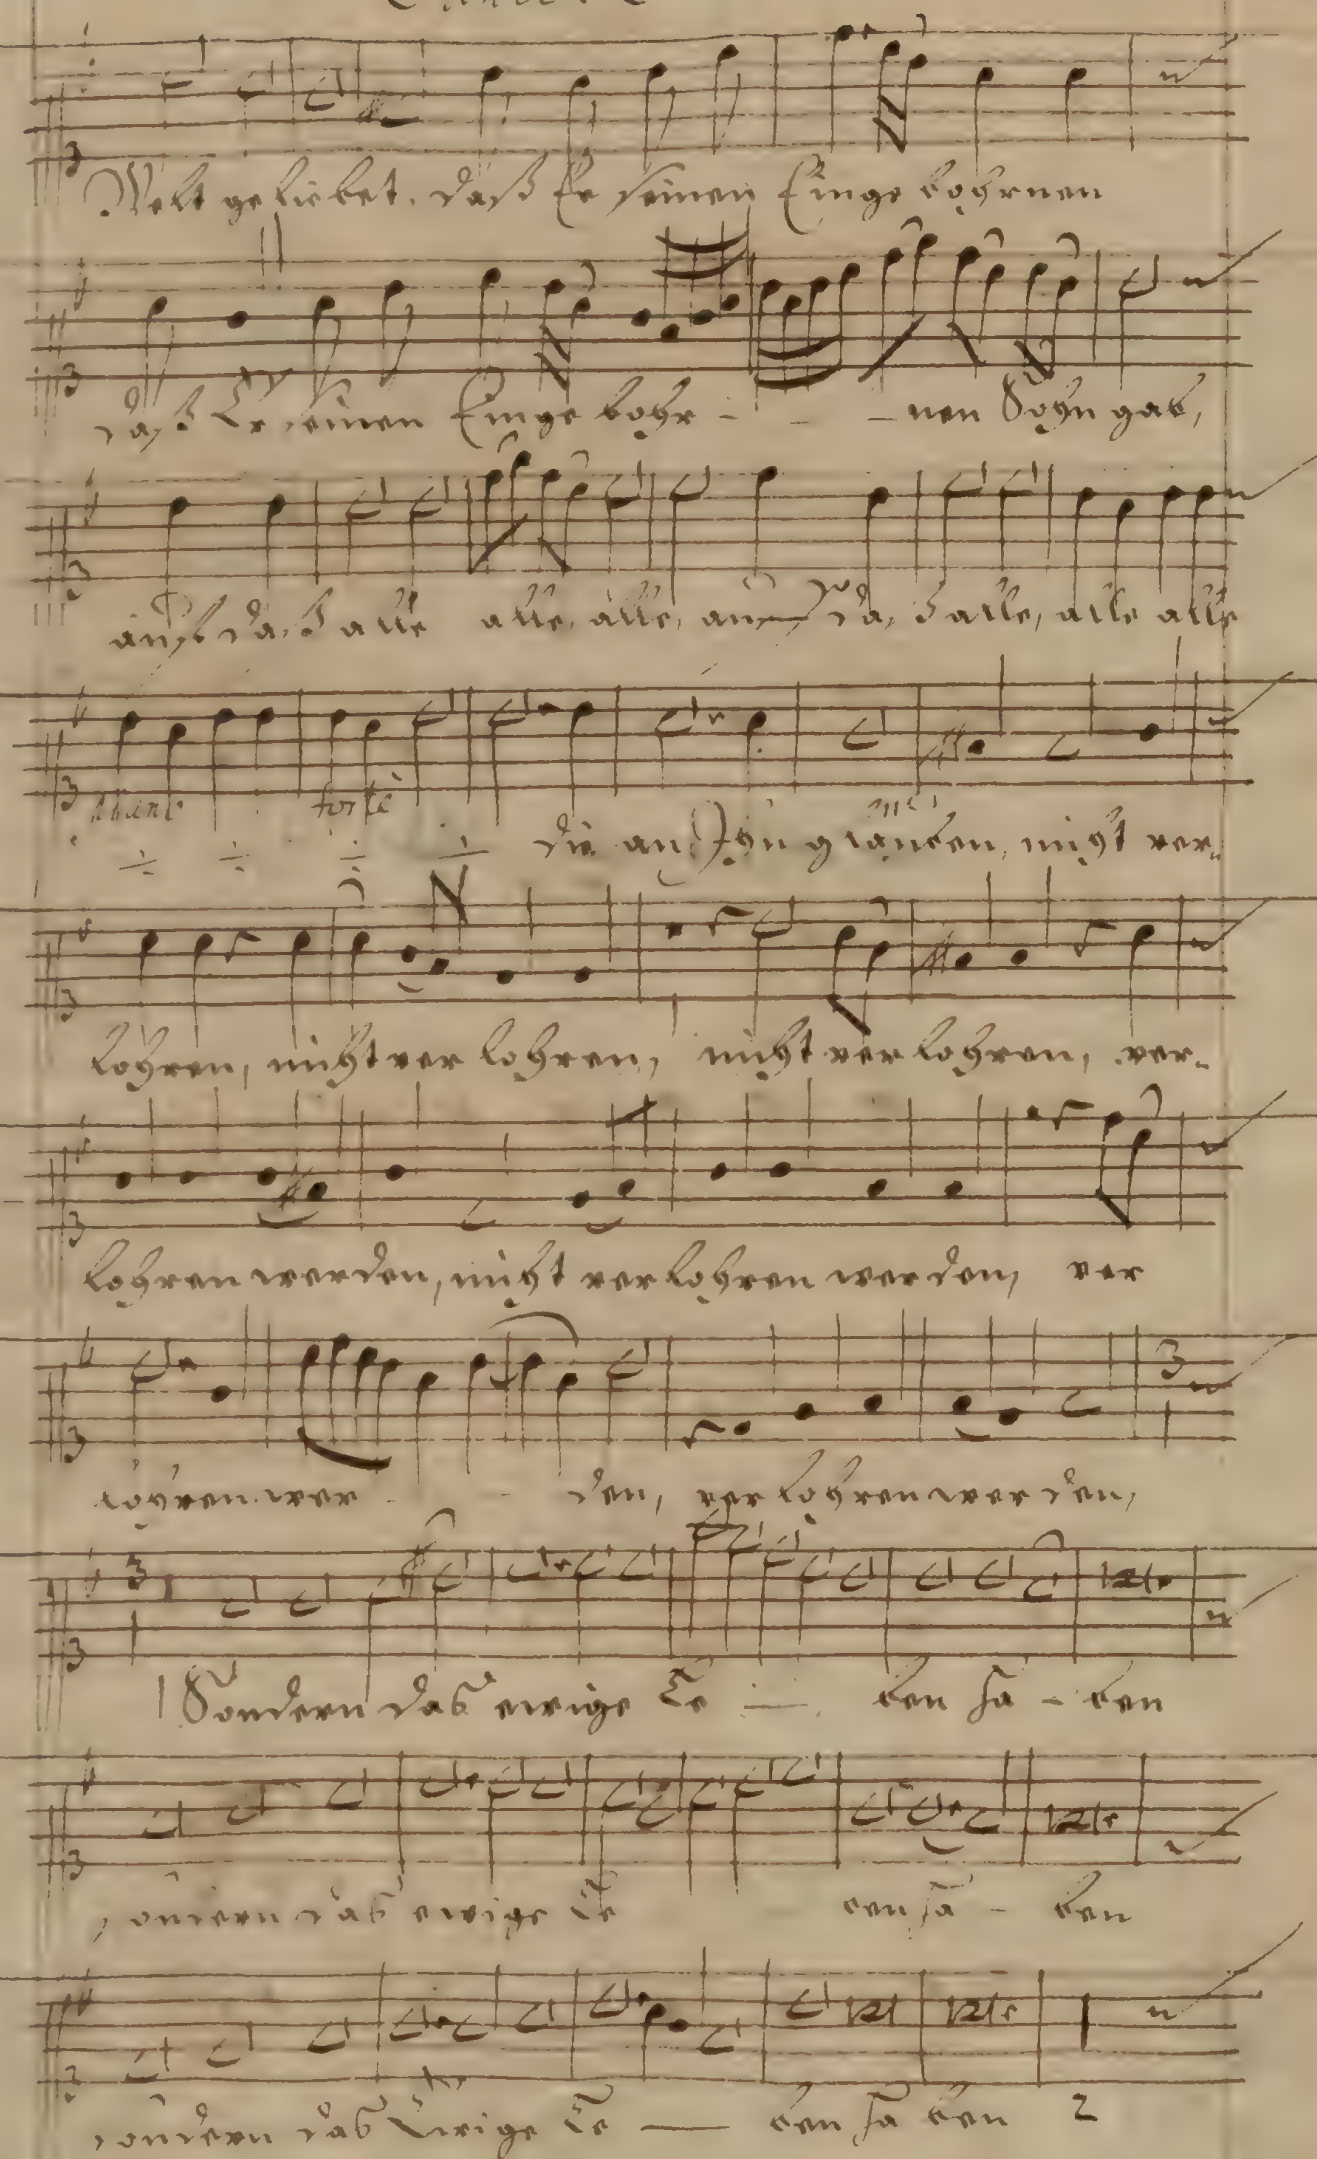 Welt geliebet, daß Er seinen Eingebohrnen
daß Er seinen Eingebohr - - - nen Sohn gab,
auf daß alle alle, alle, auf daß alle, alle alle
forte
÷ ÷ ÷ ÷ die an Ihn glauben, nicht ver-
lohren, nicht verlohren, nicht verlohren, ver-
lohren werden, nicht verlohren werden, ver
lohren wer - - den, verlohren werden,
3
3
Sondern das ewige Le — ben ha - ben
sondern das ewige Le ben ha - ben
sondern das Ewige Le — ben ha ben 2